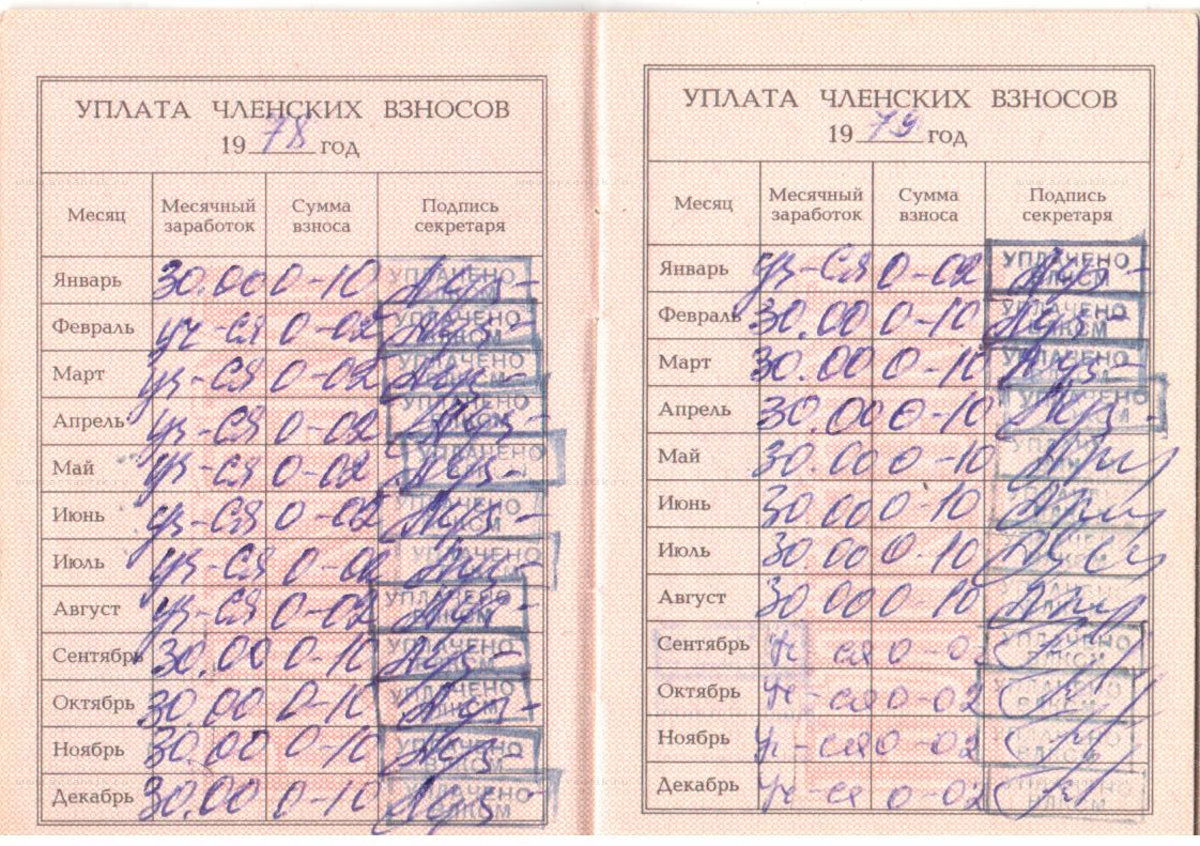 УПЛАТА ЧЛЕНСКИХ ВЗНОСОВ
1978 год
Месяц Месячный заработок Сумма взноса Подпись секретаря
Январь 30.00 0-10 УПЛАЧЕНО
Февраль уч-ся 0-02 УПЛАЧЕНО ВЛКСМ
Март уч-ся 0-02 УПЛАЧЕНО
Апрель уч-ся 0-02 УПЛАЧЕНО
Май уч-ся 0-02
Июнь уч-ся 0-02 УПЛАЧЕНО
Июль уч-ся 0-02 УПЛАЧЕНО
Август уч-ся 0-02 УПЛАЧЕНО
Сентябрь 30.00 0-10 УПЛАЧЕНО ВЛКСМ
Октябрь 30.00 0-10 УПЛАЧЕНО ВЛКСМ
Ноябрь 30.00 0-10 УПЛАЧЕНО
Декабрь 30.00 0-10 УПЛАЧЕНО ВЛКСМ
УПЛАТА ЧЛЕНСКИХ ВЗНОСОВ
1979 год
Месяц Месячный заработок Сумма взноса Подпись секретаря
Январь уч-ся 0-02 УПЛАЧЕНО ВЛКСМ
Февраль 30.00 0-10 УПЛАЧЕНО ВЛКСМ
Март 30.00 0-10 УПЛАЧЕНО
Апрель 30.00 0-10 УПЛАЧЕНО
Май 30.00 0-10
Июнь 30.00 0-10
Июль 30.00 0-10
Август 30.00 0-10
Сентябрь уч-ся 0-02 УПЛАЧЕНО ВЛКСМ
Октябрь уч-ся 0-02 УПЛАЧЕНО ВЛКСМ
Ноябрь уч-ся 0-02 УПЛАЧЕНО
Декабрь уч-ся 0-02 УПЛАЧЕНО ВЛКСМ